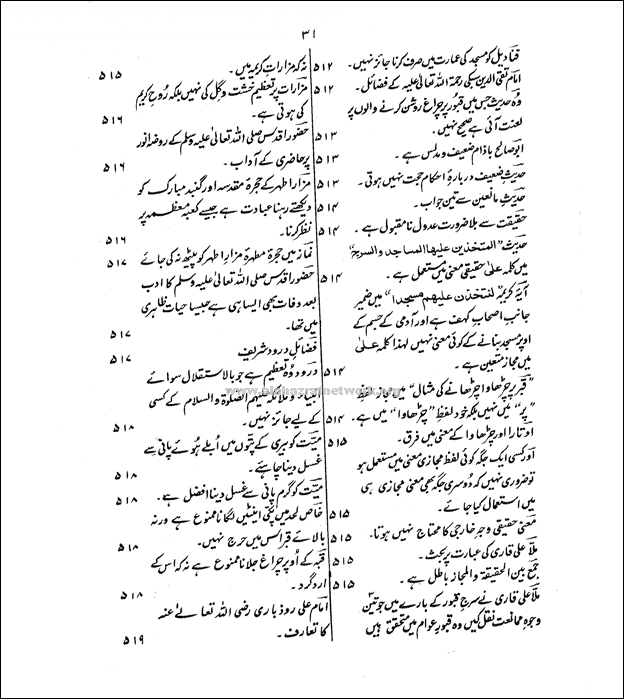 ۳۱
قنادیل کو مسجد کی عمارت میں صرف کرنا جائز نہیں۔ ۵۱۲
امام تقی الدین سبکی رحمۃ اللہ تعالٰی علیہ کے فضائل۔ ۵۱۲
وُہ حدیث جس میں قبور پر چراغ روشن کرنے والوں پر
لعنت آئی ہے صحیح نہیں۔ ۵۱۳
ابو صالح باذام ضعیف و مدلس ہے۔ ۵۱۳
حدیثِ ضعیف دربارۂ احکام حجت نہیں ہوتی۔ ۵۱۳
حدیثِ مانعین سے تین جواب۔ ۵۱۴
حقیقت سے بلا ضرورت عدول نا مقبول ہے۔ ۵۱۴
حدیث "المتخذین علیھا المساجد والسرج"
میں کلمہ علیٰ حقیقی معنی میں مستعمل ہے۔ ۵۱۴
آیۂ کریمہ "لنتخذن علیھم مسجدا" میں ضمیر
جانبِ اصحابِ کہف ہے اور آدمی کے جسم کے
اوپر مسجد بنانے کے کوئی معنی نہیں لہٰذا کلمہ علیٰ
میں مجاز متعین ہے۔ ۵۱۴
"قبر پر چڑھاوا چڑھانے کی مثال" میں مجاز لفظِ
"پر" میں نہیں بلکہ خود لفظِ "چڑھاوا" میں ہے۔ ۵۱۴
اوتارا اور چڑھاوا کے معنی میں فرق۔ ۵۱۵
اور کسی ایک جگہ کوئی لفظ مجازی معنی میں مستعمل ہو
تو ضروری نہیں کہ دُوسری جگہ بھی معنی مجازی ہی
میں استعمال کیا جائے۔ ۵۱۵
معنی حقیقی وجہِ خارجی کا محتاج نہیں ہوتا۔ ۵۱۵
ملّا علی قاری کی عبارت پر بحث۔ ۵۱۵
جمع بین الحقیقۃ والمجاز باطل ہے۔ ۵۱۵
ملّا علی قاری نے سرجِ قبور کے بارے میں جو تین
وجوہِ ممانعت نقل کیں وہ قبورِ عوام میں متحقق ہیں
نہ کہ مزاراتِ کریمہ میں۔ ۵۱۵
مزارات پر تعظیم خشت و گل کی نہیں بلکہ رُوحِ کریم
کی ہوتی ہے۔ ۵۱۶
حضور اقدس صلی اللہ تعالیٰ علیہ وسلم کے روضہ انور
پر حاضری کے آداب۔ ۵۱۶
مزارِ اطہر کے حجرۂ مقدسہ اور گنبد مبارک کو
دیکھتے رہنا عبادت ہے جیسے کعبہ معظمہ پر
نظر کرنا۔ ۵۱۶
نماز میں حجرۂ مطہرۂ مزارِ اطہر کو پیٹھ نہ کی جائے ۵۱۷
حضور اقدس صلی اللہ تعالیٰ علیہ وسلم کا ادب
بعد وفات بھی ایسا ہی ہے جیسا حیات ظاہری
میں تھا۔ ۵۱۷
فضائل درود شریف ۵۱۷
درود وُہ تعظیم ہے جو بالاستقلال سوائے
انبیاء و ملائکہ علیہم الصلوٰۃ والسلام کے کسی
کے لیے جائز نہیں۔ ۵۱۸
میّت کو بیری کے پتوں میں اُبلے ہُوئے پانی سے
غسل دینا چاہئے۔ ۵۱۸
میّت کو گرم پانی سے غسل دینا افضل ہے۔ ۵۱۸
خاص لحد میں پکّی اینٹیں لگانا ممنوع ہے ورنہ
بالائے قبر اس میں حرج نہیں۔ ۵۱۸
قبہ کے اُوپر چراغ جلانا ممنوع ہے نہ کہ اس کے
اردگرد۔ ۵۱۸
امام علی روذباری رضی اللہ تعالٰے عنہ
کا تعارف۔ ۵۱۹